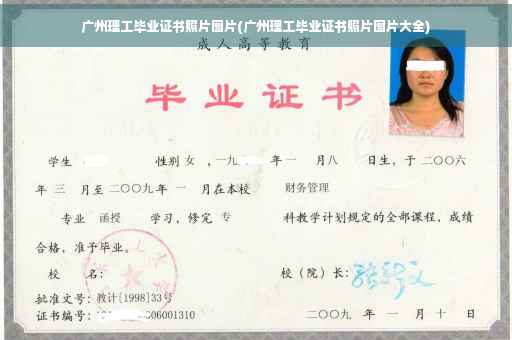 广州理工毕业证书照片图片(广州理工毕业证书照片图片大全)
成人高等教育
毕业证书
学生 性别 女 ，一九 年 一 月 八 日生，于 二〇〇六
年 三 月至 二〇〇九年 一 月在本校 财务管理
专业 函授 学习，修完 专 科教学计划规定的全部课程，成绩
合格，准予毕业。
校 名： 校（院）长：
批准文号：教计[1998]33号
证书编号： 06001310 二〇〇九 年 一 月 十 日